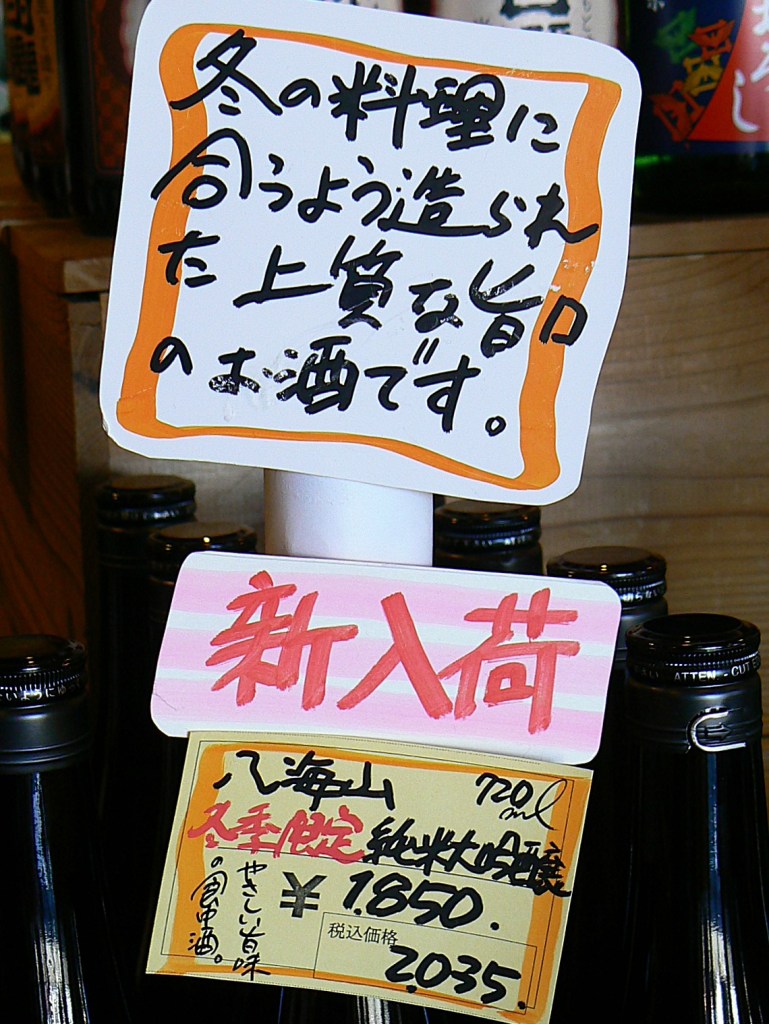 冬の料理に
合うよう造られ
た上質な旨口
のお酒です。
新入荷
八海山 720ml
冬季限定 純米大吟醸
やさしい旨味
の食中酒。
1.850.
税込価格
2.035.
ATTEN - CUT